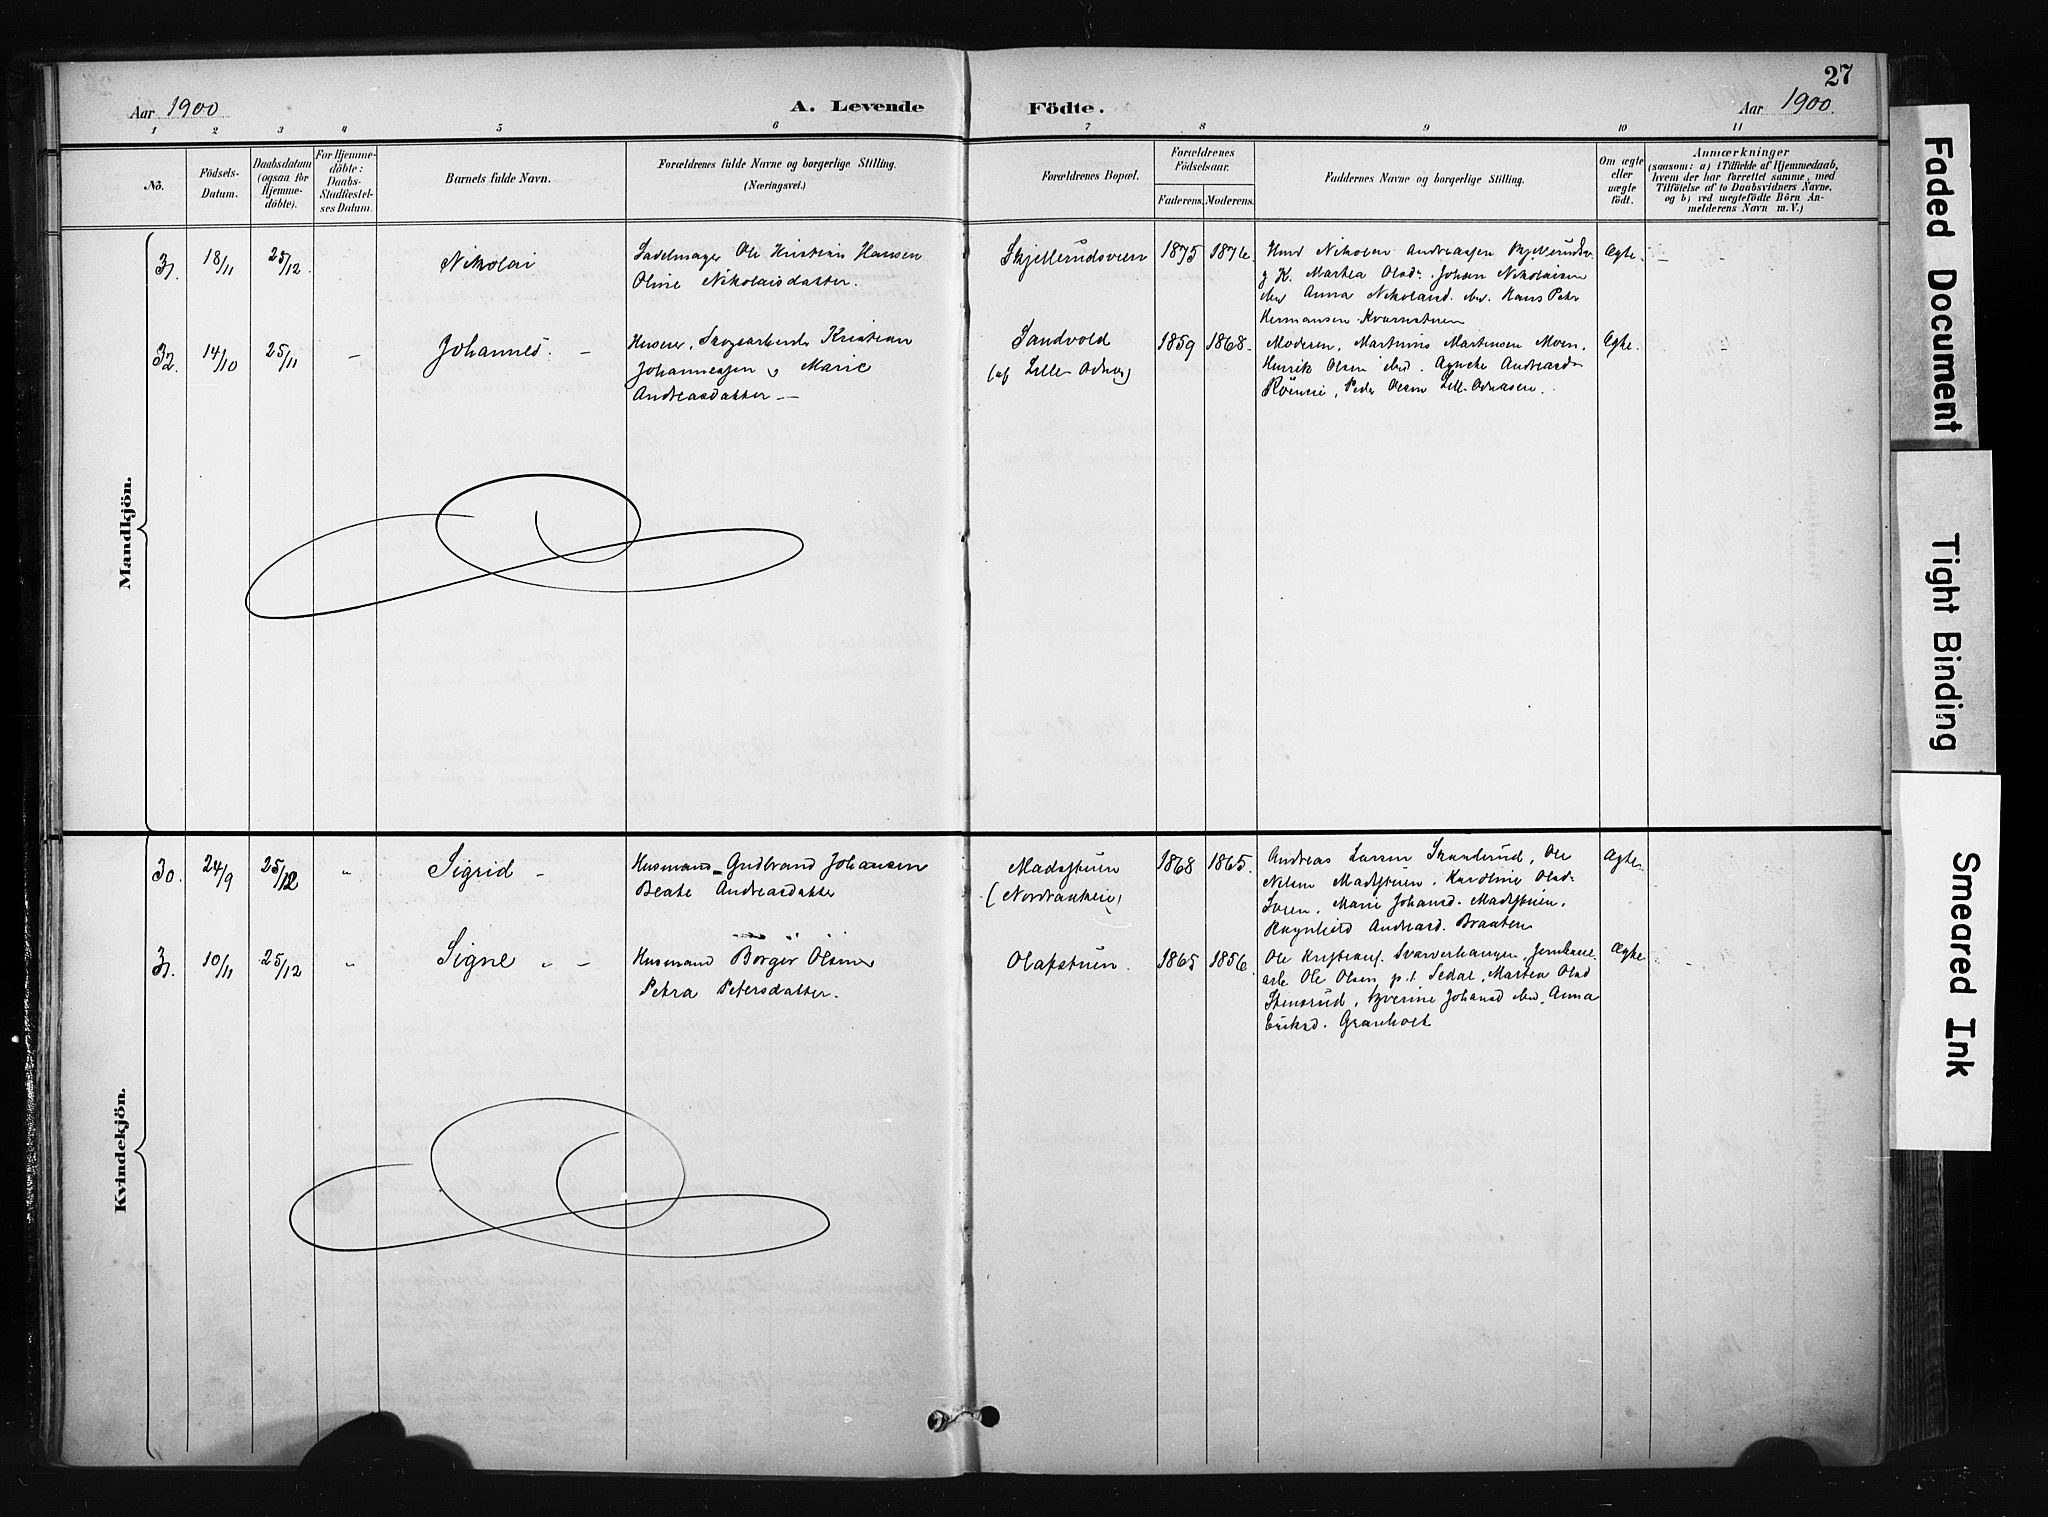 27
Aar 1900
A. Levende
Födte.
Aar 1900.
1 2 3 4 5 6 7 8 9 10 11
No.
Födsels-
Datum.
Daabsdatum
(ogsaa for
Hjemme-
döbte).
For Hjemme-
döbte:
Daabs-
Stadfæstel-
ses Datum.
Barnets fulde Navn.
Forældrenes fulde Navne og borgerlige Stilling.
(Næringsvei.)
Forældrenes Bopæl.
Forældrenes
Födselsaar.
Faderens. Moderens.
Faddernes Navne og borgerlige Stilling.
Om ægte
eller
uægte
födt.
Anmærkninger
(saasom: a) i Tilfælde af Hjemmedaab,
hvem der har forrettet samme, med
Tilföielse af to Daabsvidners Navne,
og b) ved uægtefödte Börn An-
melderens Navn m. V.)
Mandkjön.
31. 18/11 25/12. Nikolai
Sadelmager Ole Kristian Hansen
Oline Nikolaisdatter.
Skjellerudsveen 1875 1876.
Nikolai Andreassen
K. Marthea Olsdr. Johan Nikolaisen
Anna Nikolaisd. Hans Petr
Hermansen Kvarnstuen
Ægte.
32. 14/10 25/11 – Johannes. –
Skogsarbeider Kristian
Johannessen og Marie
Andreasdatter –
Sandvold
(af Lille Odnes)
1859 1868.
Moderen, Martinus Martinsen Moen,
Henrik Olsen ibid. Agnethe Andreasdr
Peder Olsen Lille Odnesen.
Ægte.
Kvindekjön.
30. 24/9 25/12 " Sigrid -
Husmand Gudbrand Johansen
Beate Andreasdatter
Madsstuen
(Nordraakeie)
1868 1865.
Andreas Larsen Skanderud, Ole
Nilsen Madsstuen. Karoline Olsd.
Sveen, Marie Johansd. Madsstuen.
Ragnhild Andreasd. Braaten
Ægte
31. 10/11 25/12 " Signe " -
Husmand Borger Olsen
Petra Petersdatter.
Olafstuen. 1865 1856.
Ole Kristians. Jernbane-
arb. Ole Olsen p.t. Sedal, Marten Olsd
Stensrud, Syverine Johansd ibd, Anna
Eriksd. Granholt
Ægte
Faded Document
Tight Binding
Smeared Ink